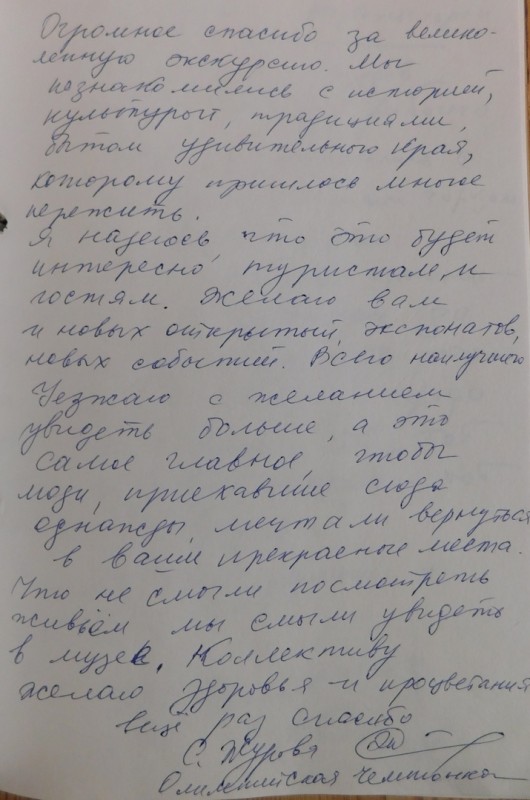 Огромное спасибо за велико-
лепную экскурсию. Мы
познакомились с историей,
культурой, традициями,
бытом удивительного края,
которому пришлось многое
пережить.
Я надеюсь, что это будет
интересно туристам и
гостям. Желаю вам
и новых открытий, экспонатов,
новых событий. Всего наилучшего
Уезжаю с желанием
увидеть больше, а это
самое главное, чтобы
люди, приехавшие сюда
однажды, мечтали вернуться
в ваши прекрасные места.
Что не смогли посмотреть
живьём мы смогли увидеть
в музее. Коллективу
желаю здоровья и процветания
ещё раз спасибо
С. Журова
Олимпийская чемпионка